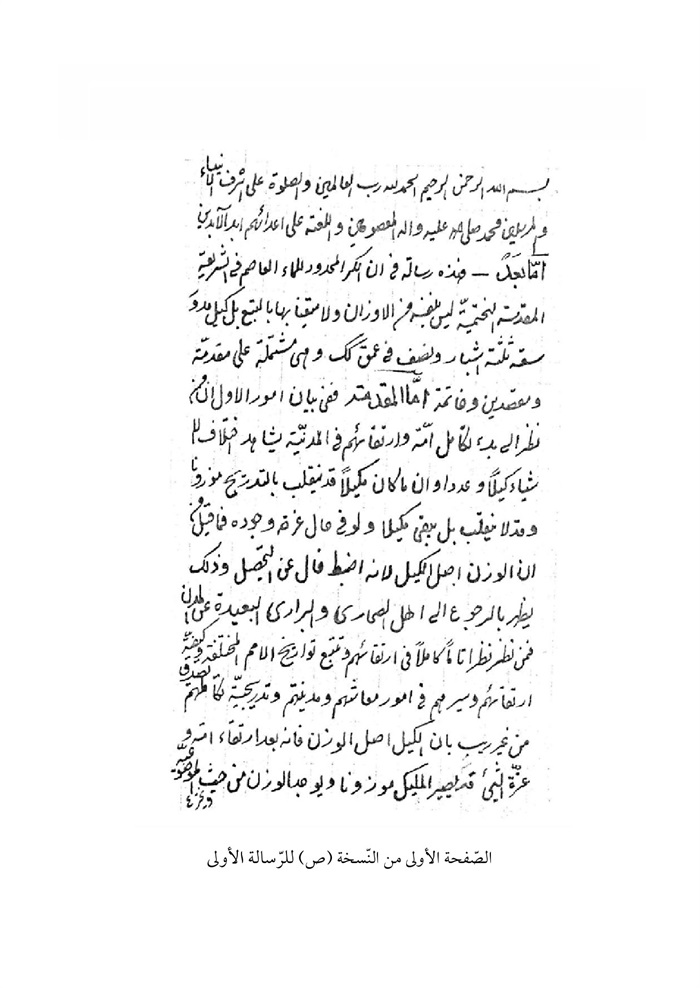 بسم الله الرحمن الرحيم الحمد لله رب العالمين والصلوة على اشرف الانبياء
والمرسلين محمد صلى الله عليه واله المعصومين واللعنة على اعدائهم ابد الآبدين
امّا بعد فهذه رسالة في ان الكر المحدود للماء العاصم في الشريعة
المقدسة الختميّة ليس بنفسه من الاوزان ولا متعينا بها بالتبع بل كيل مدوّر
سعته ثلثة اشبار ونصف في عمق كك وهى مشتملة على مقدمة
ومقصدين وخاتمة امّا المقدمة ففي بيان امور الاول ان من
نظر الى بدء تكامل امّة وارتقائهم في المدنيّة يشاهد اختلاف للا
شياء كيلاً وعددا وان ما كان مكيلاً قد ينقلب بالتدريج موزونا
وقد لا ينقلب بل يبقى مكيلا ولو في حال عزة وجوده فما قيل من
ان الوزن اصل الكيل لانه اضبط خال عن التحصيل وذلك
يظهر بالرجوع الى اهل الصحارى والبرارى البعيدة عن المدن
فمن نظر نظرا تاماً كاملاً في ارتقائهم وتتبع تواريخ الامم المختلفة وكيفيّة
ارتقائهم وسيرهم في امور معاشهم ومدنيتهم وتدريجيّة تكاملهم يصدق
من غير ريب بان الكيل اصل الوزن فانه بعد ارتقاء امة و
عزّة الشئ قد يصير المكيل موزونا ويوجد الوزن من حيث الموضوعيّة
الصّفحة الأولى من النّسخة (ص) للرّسالة الأولى